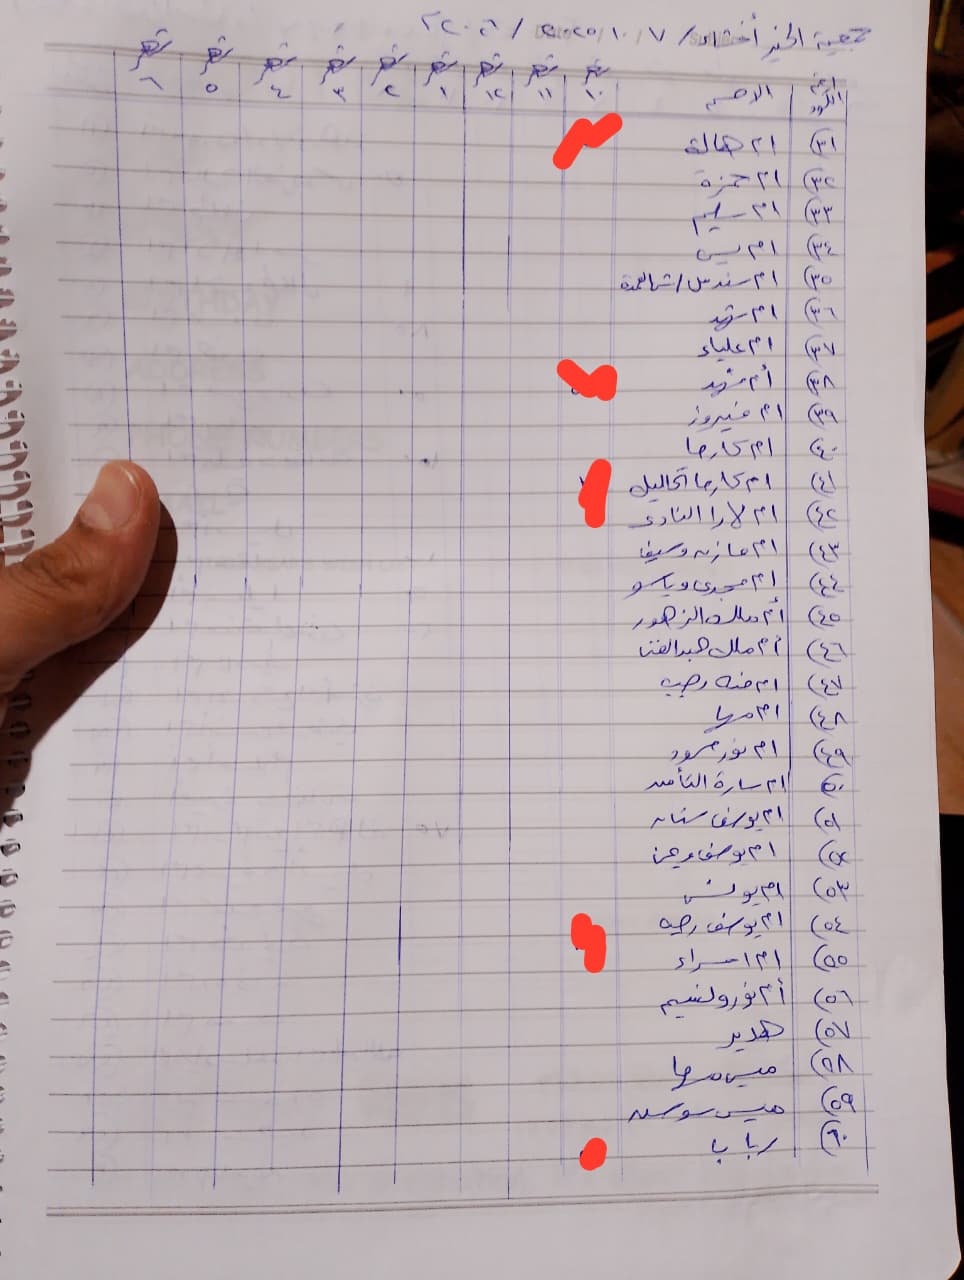 جمعية الخير أختام / ٢٠٢٥/١٠/٧ / ٢٠٢٦
رقم الكود الاسم شهر ١٠ شهر ١١ شهر ١٢ شهر ١ شهر ٢ شهر ٣ شهر ٤ شهر ٥ شهر ٦
(٣١ ام هالة
(٣٢ ام حمزة
(٣٣ ام سليم
(٣٤ ام
(٣٥ ام سندس /
(٣٦ ام شهد
(٣٧ ام علياء
(٣٨ أم شهد
(٣٩ ام فيروز
(٤٠ ام كارما
(٤١ ام كارما التحاليل
(٤٢ ام لارا النادى
(٤٣ ام مازن وسيف
(٤٤ ام مجدى وياسو
(٤٥ أم ملك الزهور
(٤٦ أم ملك
(٤٧ ام منه رجب
(٤٨ ام مها
(٤٩ ام نور محمود
(٥٠ ام سارة التأمين
(٥١ ام يوسف سنان
(٥٢ ام يوسف
(٥٣ ام يونس
(٥٤ ام يوسف رجب
(٥٥ ام اسراء
(٥٦ أم نور ونسيم
(٥٧ هدير
(٥٨ ميس مها
(٥٩ ميس سوسن
(٦٠ رباب